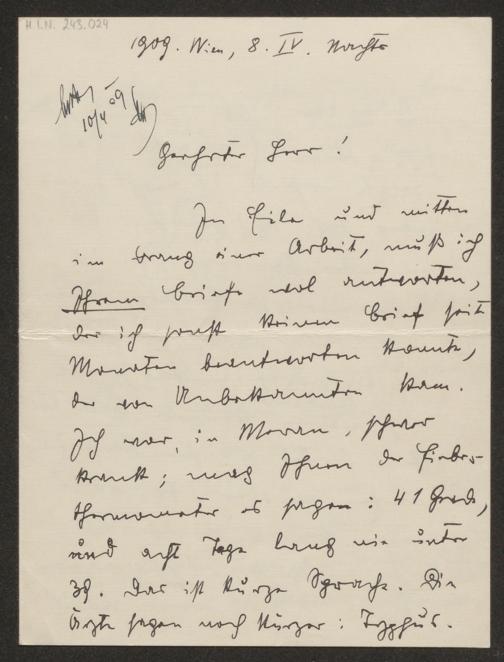 H.I.N. 243.024
1909. Wien, 8. IV. Nachts
10/4 09
Geehrter Herr!
In Eile und mitten
im Drang einer Arbeit, muß ich
Ihrem Briefe wol antworten,
der ich sonst keinen Brief seit
Monaten beantworten konnte,
der von Unbekannten kam.
Ich war, in Meran, schwer
krank; mag Ihnen der Fieber-
thermometer es sagen: 41 Grade,
und acht Tage lang nie unter
39. Das ist kurze Sprache. Die
Ärzte sagen noch kürzer: Typhus.